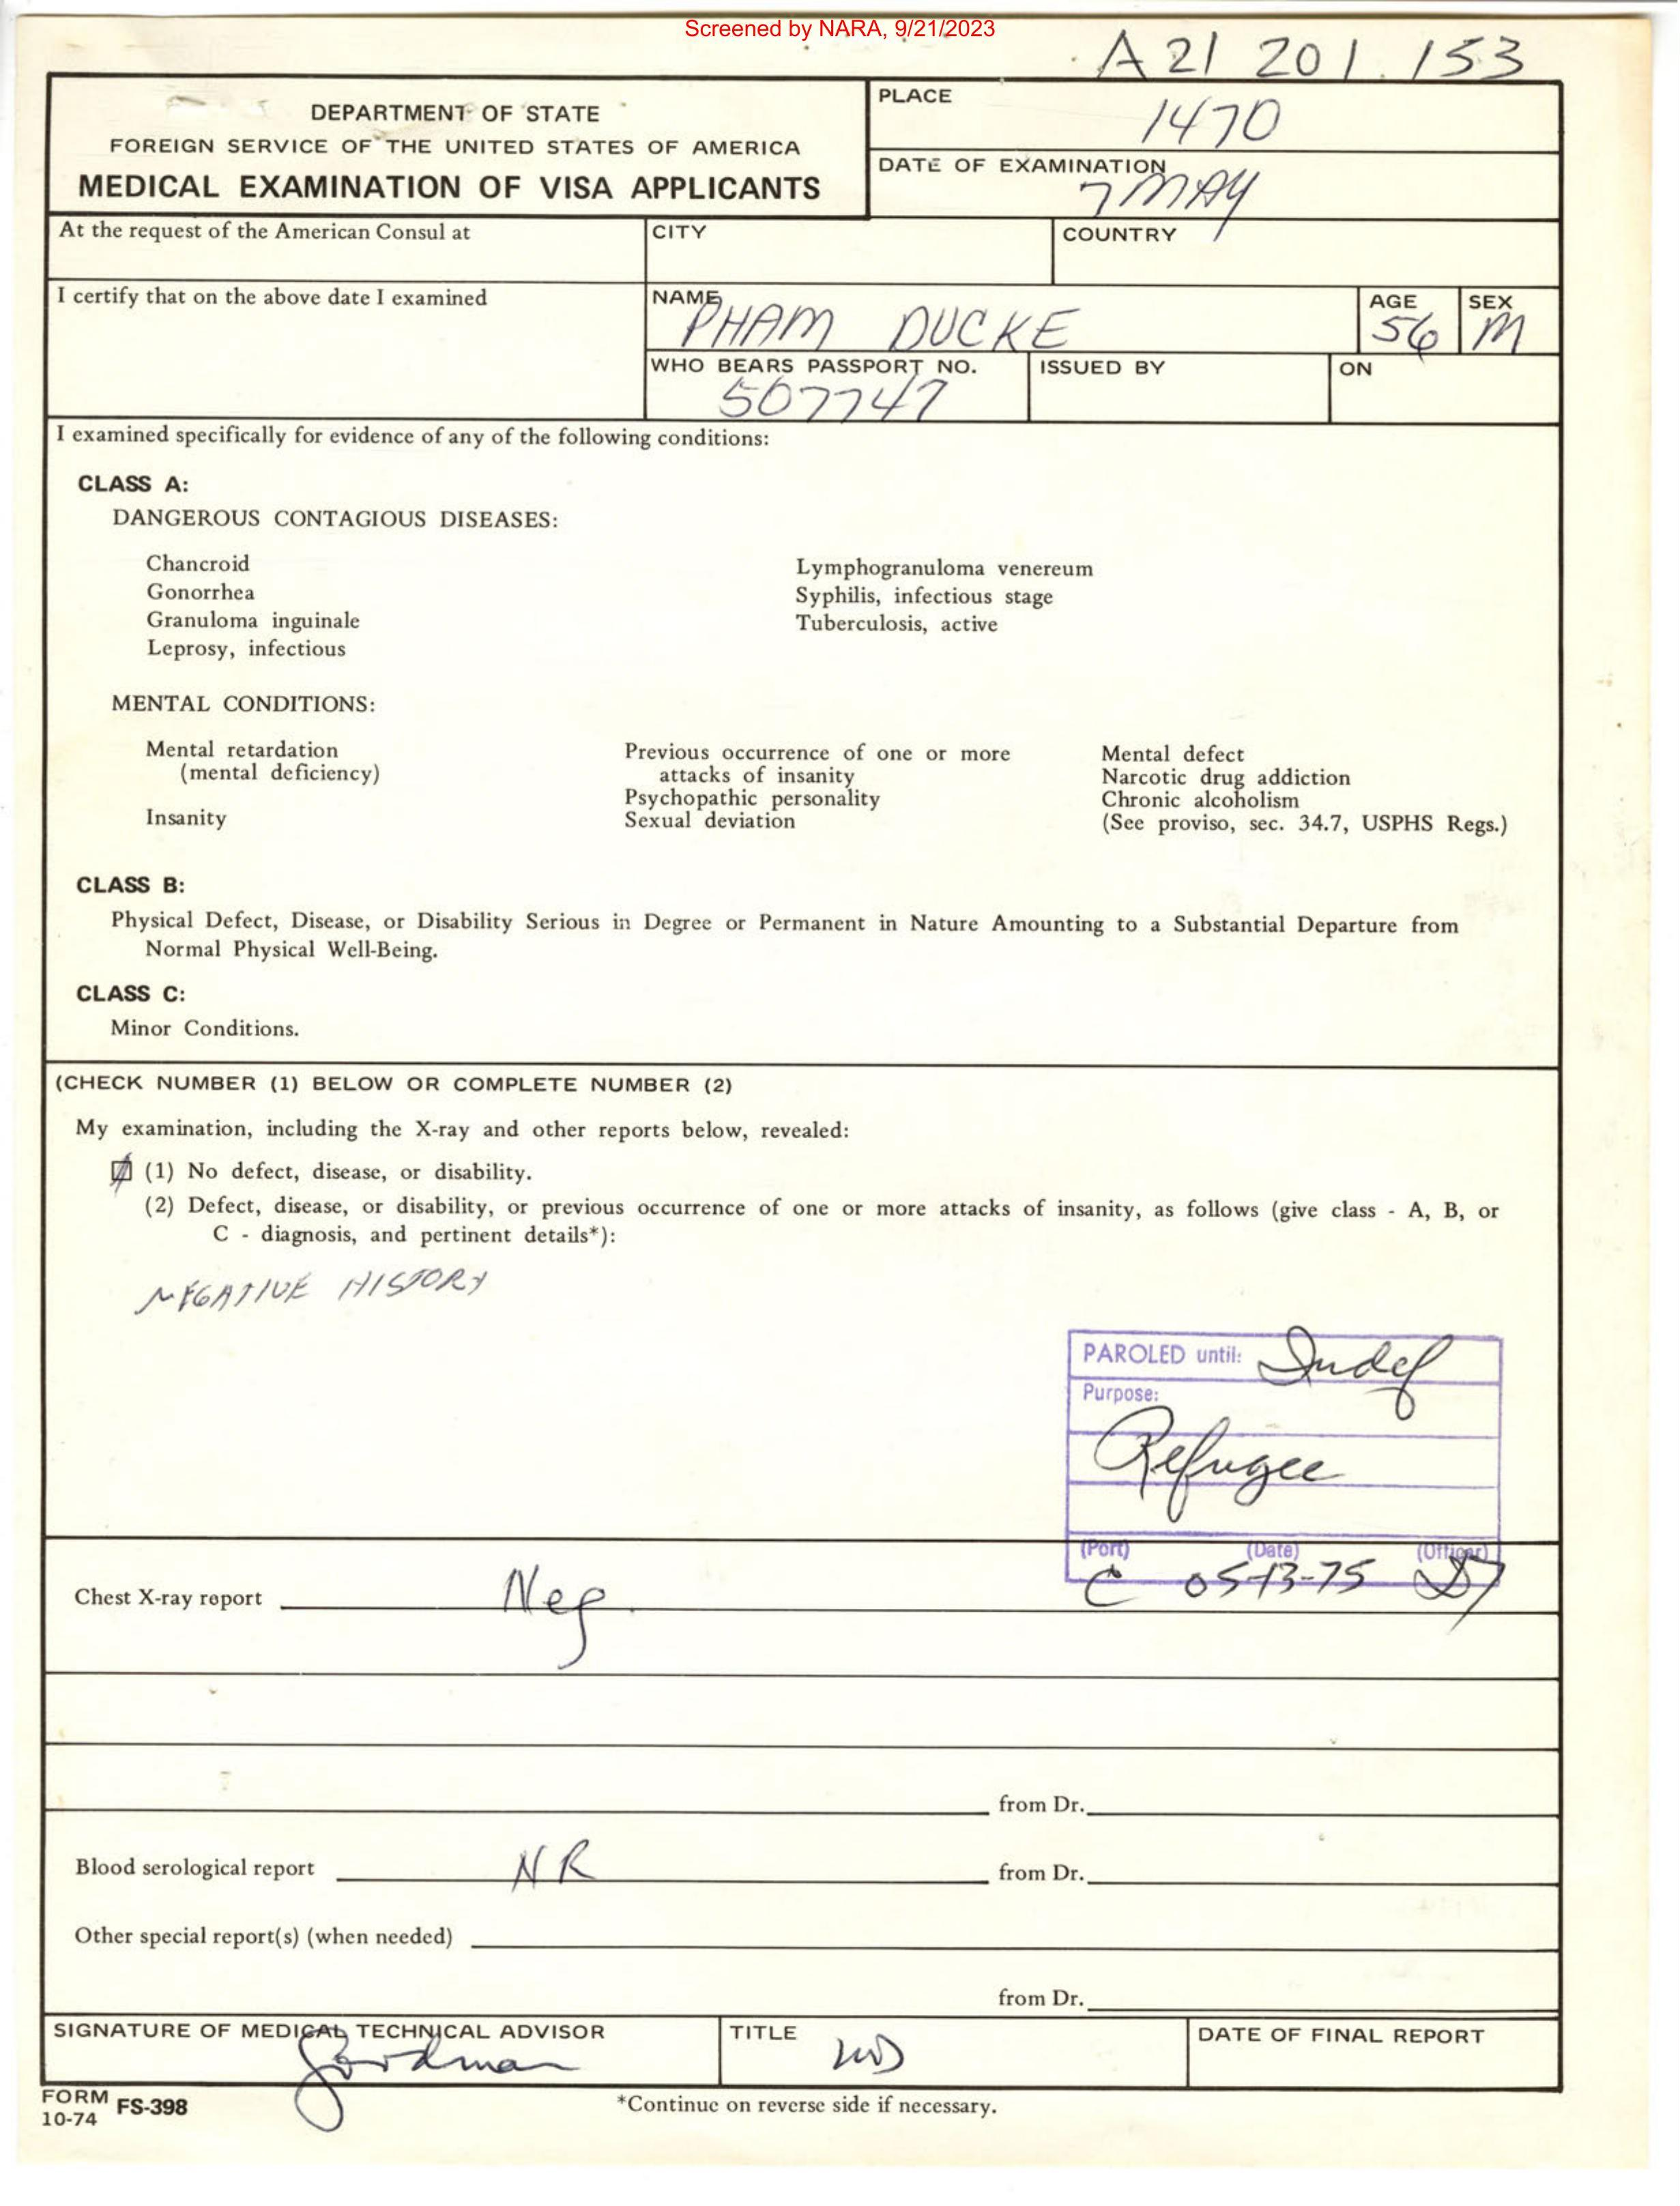 Screened by NARA, 9/21/2023
A21 201 153
DEPARTMENT OF STATE
FOREIGN SERVICE OF THE UNITED STATES OF AMERICA
MEDICAL EXAMINATION OF VISA APPLICANTS
PLACE
1470
DATE OF EXAMINATION
7 MAY
At the request of the American Consul at
CITY
COUNTRY
I certify that on the above date I examined
NAME
PHAM DUCKE
AGE
56
SEX
M
WHO BEARS PASSPORT NO.
507747
ISSUED BY
ON
I examined specifically for evidence of any of the following conditions:
CLASS A:
DANGEROUS CONTAGIOUS DISEASES:
Chancroid
Gonorrhea
Granuloma inguinale
Leprosy, infectious
Lymphogranuloma venereum
Syphilis, infectious stage
Tuberculosis, active
MENTAL CONDITIONS:
Mental retardation
(mental deficiency)
Insanity
Previous occurrence of one or more
attacks of insanity
Psychopathic personality
Sexual deviation
Mental defect
Narcotic drug addiction
Chronic alcoholism
(See proviso, sec. 34.7, USPHS Regs.)
CLASS B:
Physical Defect, Disease, or Disability Serious in Degree or Permanent in Nature Amounting to a Substantial Departure from
Normal Physical Well-Being.
CLASS C:
Minor Conditions.
(CHECK NUMBER (1) BELOW OR COMPLETE NUMBER (2)
My examination, including the X-ray and other reports below, revealed:
(1) No defect, disease, or disability.
(2) Defect, disease, or disability, or previous occurrence of one or more attacks of insanity, as follows (give class - A, B, or
C - diagnosis, and pertinent details*):
NEGATIVE HISTORY
PAROLED until: Indef
Purpose:
Refugee
(Port) (Date) (Officer)
C 05-13-75
Chest X-ray report Neg
from Dr.
Blood serological report NR from Dr.
Other special report(s) (when needed)
from Dr.
SIGNATURE OF MEDICAL TECHNICAL ADVISOR
TITLE
MD
DATE OF FINAL REPORT
FORM
10-74 FS-398
*Continue on reverse side if necessary.